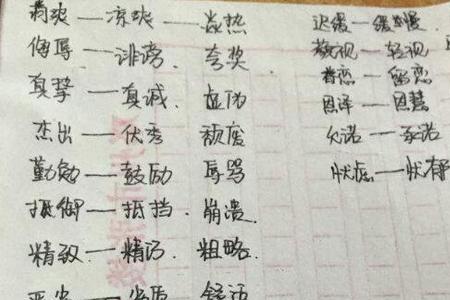 爽——凉爽——炎热
侮辱——诽谤、夸奖
真挚——真诚、虚伪
杰出——优秀 颓废
勤勉——鼓励 辱骂
抵御——抵挡、崩溃.
精致——精巧、粗略.
迟缓—缓慢
藐视—轻视
眷恋—留恋
恩泽—恩惠
允诺—承诺